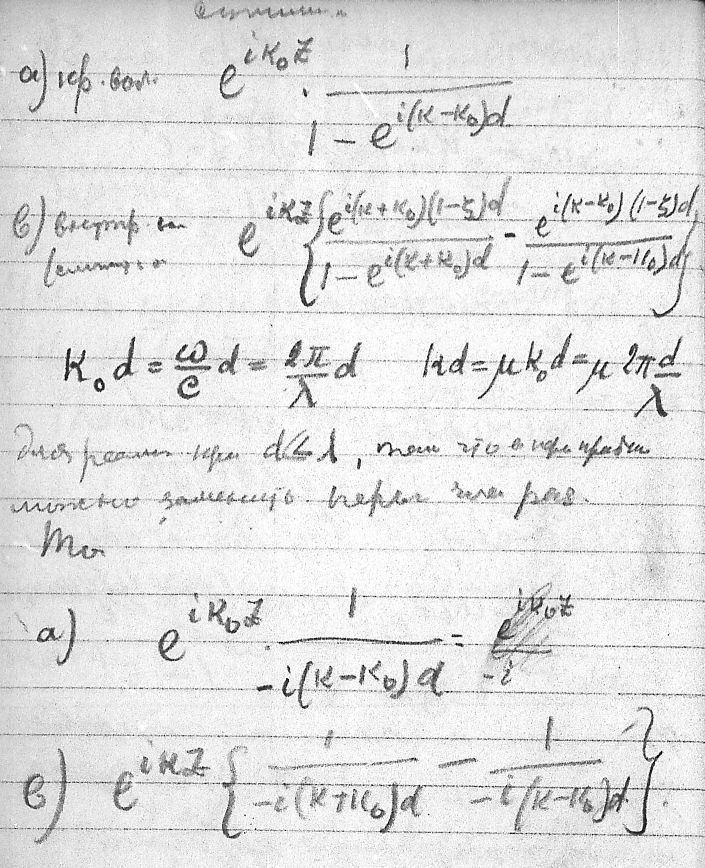 а) кр. вол. e^{ik₀z} · 1 / (1 − e^{i(k−k₀)d})
в) внутр. e^{ikz} { e^{i(k+k₀)(1−ξ)d} / (1 − e^{i(k+k₀)d}) − e^{i(k−k₀)(1−ξ)d} / (1 − e^{i(k−k₀)d}) }
k₀d = ω/c d = 2π/λ d kd = μk₀d = μ 2π d/λ
при d ≤ λ, что
можно заменить
а) e^{ik₀z} · 1 / (−i(k−k₀)d) =
в) e^{ikz} { 1 / (−i(k+k₀)d) − 1 / (−i(k−k₀)d) }.